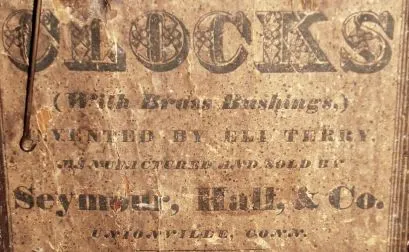 CLOCKS
(With Brass Bushings,)
INVENTED BY ELI TERRY,
MANUFACTURED AND SOLD BY
Seymour, Hall, & Co.
UNIONVILLE, CONN.